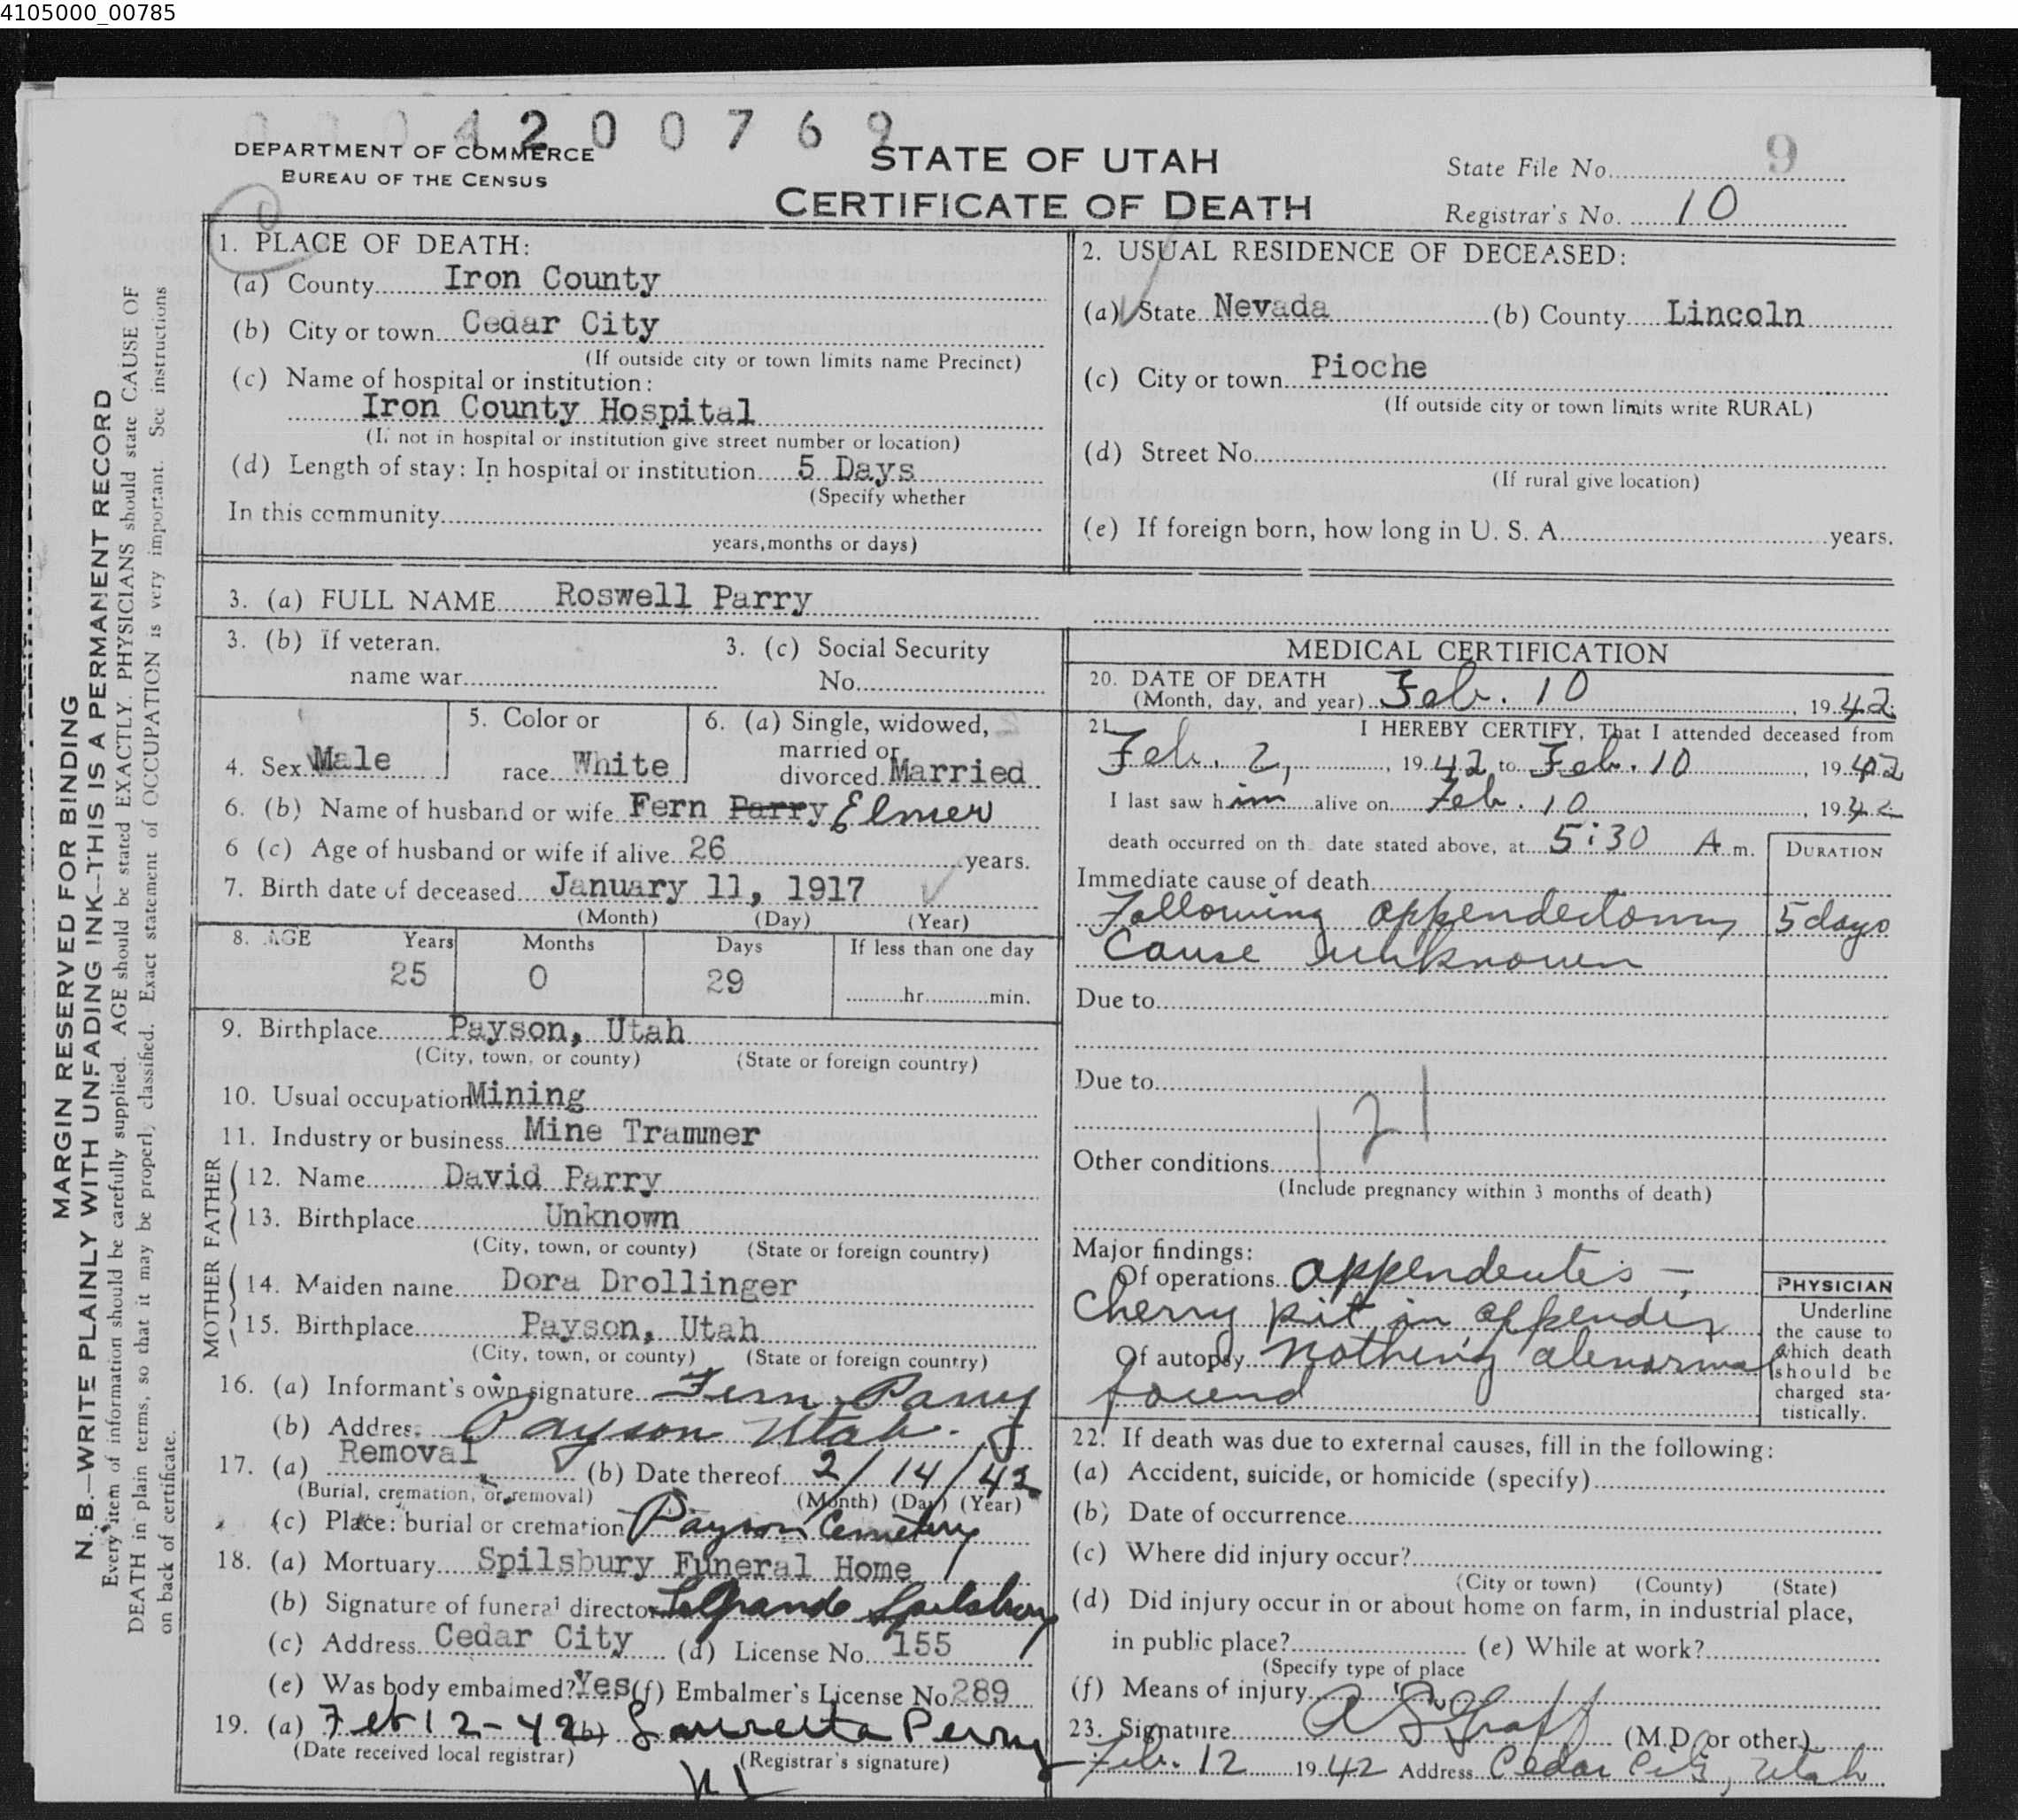 4105000_00785
4200769
DEPARTMENT OF COMMERCE
BUREAU OF THE CENSUS
STATE OF UTAH
CERTIFICATE OF DEATH
State File No. 9
Registrar's No. 10
1. PLACE OF DEATH:
(a) County Iron County
(b) City or town Cedar City
(If outside city or town limits name Precinct)
(c) Name of hospital or institution:
Iron County Hospital
(If not in hospital or institution give street number or location)
(d) Length of stay: In hospital or institution 5 Days
(Specify whether
In this community
years, months or days)
2. USUAL RESIDENCE OF DECEASED:
(a) State Nevada (b) County Lincoln
(c) City or town Pioche
(If outside city or town limits write RURAL)
(d) Street No.
(If rural give location)
(e) If foreign born, how long in U. S. A. years.
3. (a) FULL NAME Roswell Parry
3. (b) If veteran. 3. (c) Social Security
name war No.
4. Sex Male
5. Color or
race White
6. (a) Single, widowed,
married or
divorced Married
6. (b) Name of husband or wife Fern Parry Elmer
6 (c) Age of husband or wife if alive 26 years.
7. Birth date of deceased January 11, 1917
(Month) (Day) (Year)
8. AGE Years Months Days If less than one day
25 0 29 hr. min.
9. Birthplace Payson, Utah
(City, town, or county) (State or foreign country)
10. Usual occupation Mining
11. Industry or business Mine Trammer
FATHER
12. Name David Parry
13. Birthplace Unknown
(City, town, or county) (State or foreign country)
MOTHER
14. Maiden name Dora Drollinger
15. Birthplace Payson, Utah
(City, town, or county) (State or foreign country)
16. (a) Informant's own signature Fern Parry
(b) Address Payson Utah.
17. (a) Removal (b) Date thereof 2/14/42
(Burial, cremation, or removal) (Month) (Day) (Year)
(c) Place: burial or cremation Payson Cemetery
18. (a) Mortuary Spilsbury Funeral Home
(b) Signature of funeral director LaGrande Spilsbury
(c) Address Cedar City (d) License No. 155
(e) Was body embalmed? Yes (f) Embalmer's License No. 289
19. (a) Feb 12-42 (b) Lauretta Perry
(Date received local registrar) (Registrar's signature)
MEDICAL CERTIFICATION
20. DATE OF DEATH
(Month, day, and year) Feb. 10, 1942
21. I HEREBY CERTIFY, That I attended deceased from
Feb. 2, 1942 to Feb. 10, 1942
I last saw him alive on Feb. 10, 1942
death occurred on the date stated above, at 5:30 A m.
DURATION
Immediate cause of death
Following appendectomy 5 days
Cause unknown
Due to
Due to
121
Other conditions
(Include pregnancy within 3 months of death)
Major findings:
Of operations appendicitis -
Cherry pit in appendix
Of autopsy Nothing abnormal
found
PHYSICIAN
Underline
the cause to
which death
should be
charged sta-
tistically.
22. If death was due to external causes, fill in the following:
(a) Accident, suicide, or homicide (specify)
(b) Date of occurrence
(c) Where did injury occur?
(City or town) (County) (State)
(d) Did injury occur in or about home on farm, in industrial place,
in public place? (e) While at work?
(Specify type of place
(f) Means of injury
23. Signature A L Graff (M.D. or other)
Feb. 12 1942 Address Cedar City, Utah
MARGIN RESERVED FOR BINDING
N. B.—WRITE PLAINLY WITH UNFADING INK--THIS IS A PERMANENT RECORD
Every item of information should be carefully supplied. AGE should be stated EXACTLY. PHYSICIANS should state CAUSE OF
DEATH in plain terms, so that it may be properly classified. Exact statement of OCCUPATION is very important. See instructions
on back of certificate.